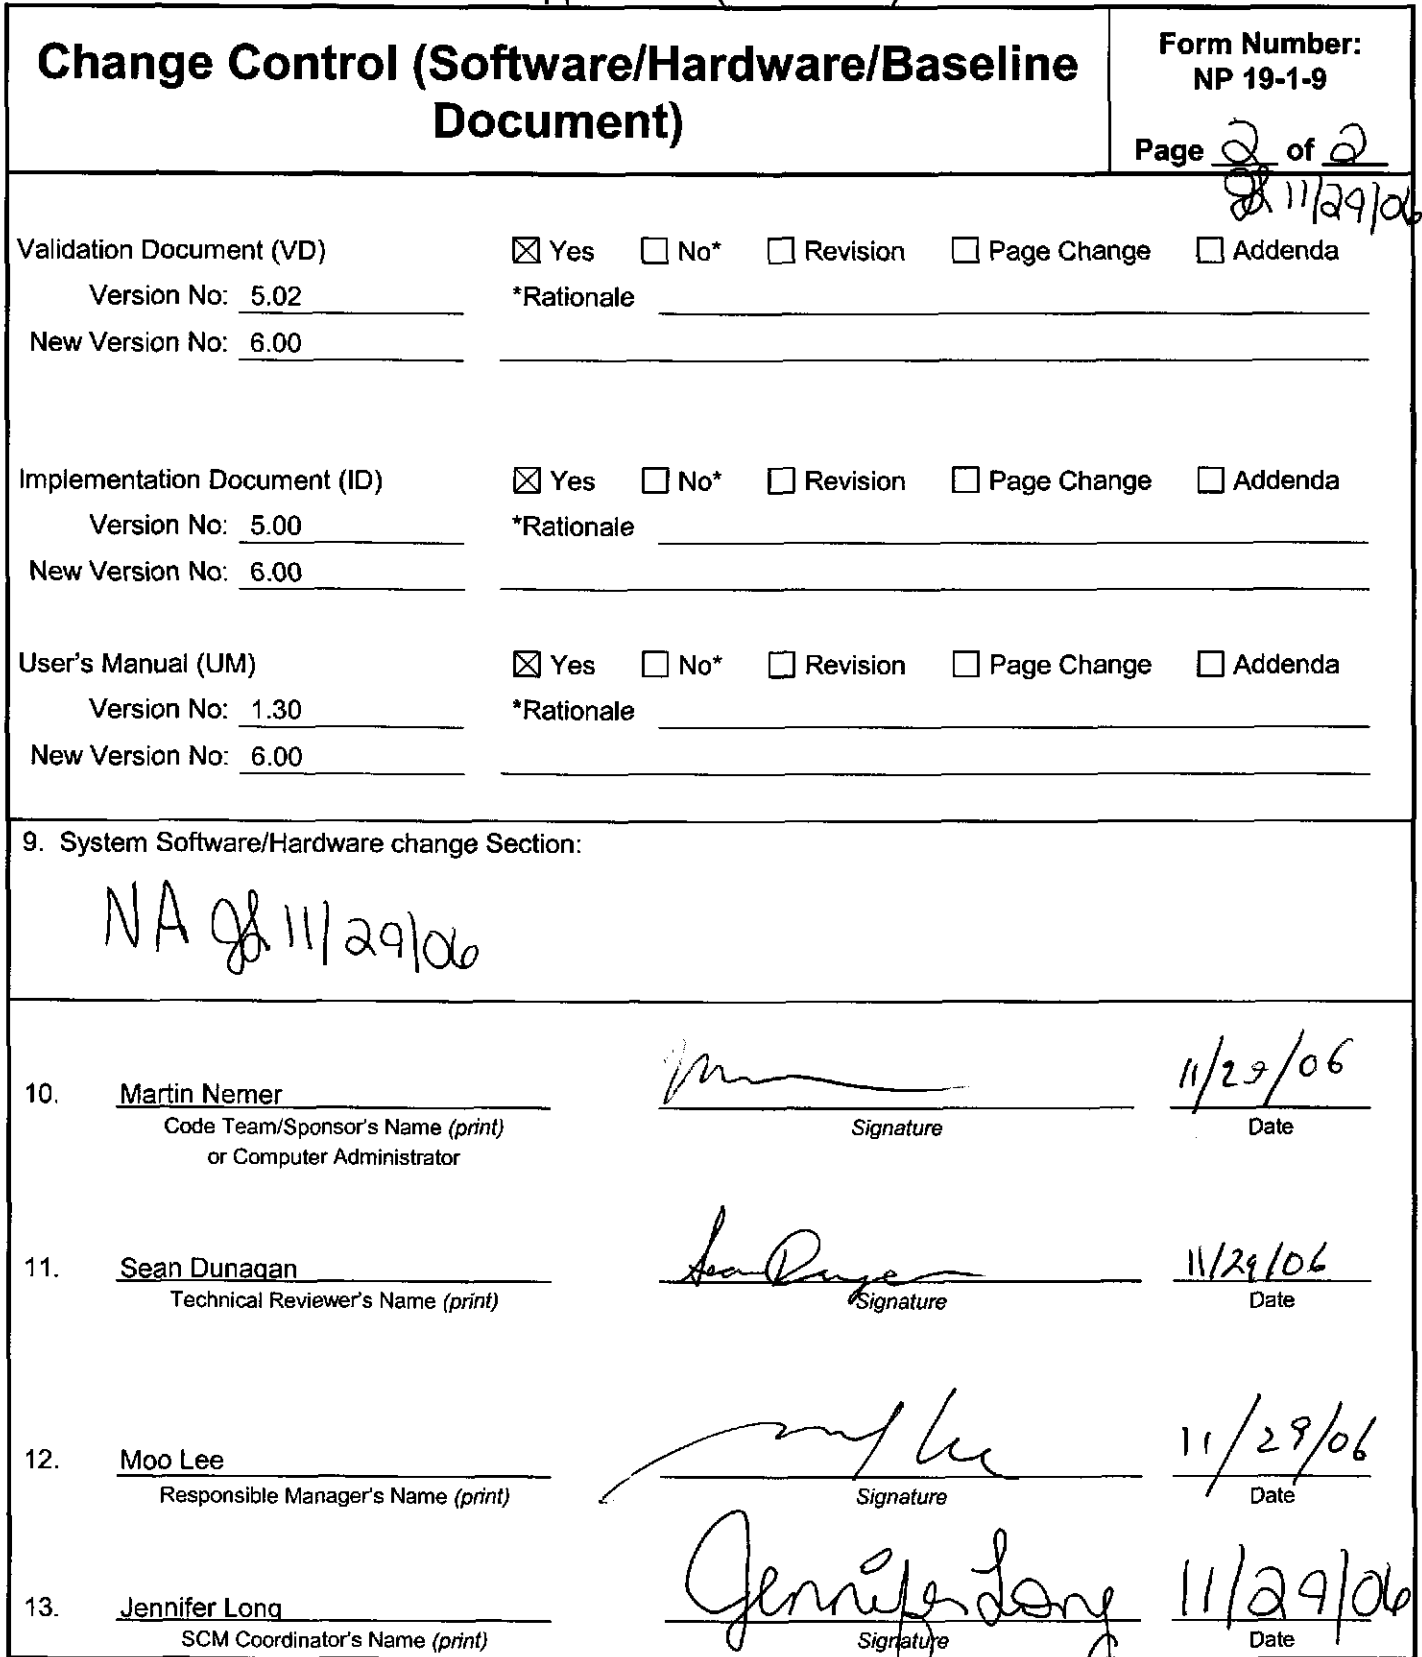 Change Control (Software/Hardware/Baseline
Document)
Form Number:
NP 19-1-9
Page 2 of 2
JL 11/29/06
Validation Document (VD) ☒ Yes ☐ No* ☐ Revision ☐ Page Change ☐ Addenda
Version No: 5.02 *Rationale
New Version No: 6.00
Implementation Document (ID) ☒ Yes ☐ No* ☐ Revision ☐ Page Change ☐ Addenda
Version No: 5.00 *Rationale
New Version No: 6.00
User's Manual (UM) ☒ Yes ☐ No* ☐ Revision ☐ Page Change ☐ Addenda
Version No: 1.30 *Rationale
New Version No: 6.00
9. System Software/Hardware change Section:
NA JL 11/29/06
10. Martin Nemer 11/29/06
Code Team/Sponsor's Name (print) Signature Date
or Computer Administrator
11. Sean Dunagan 11/29/06
Technical Reviewer's Name (print) Signature Date
12. Moo Lee 11/29/06
Responsible Manager's Name (print) Signature Date
13. Jennifer Long Jennifer Long 11/29/06
SCM Coordinator's Name (print) Signature Date